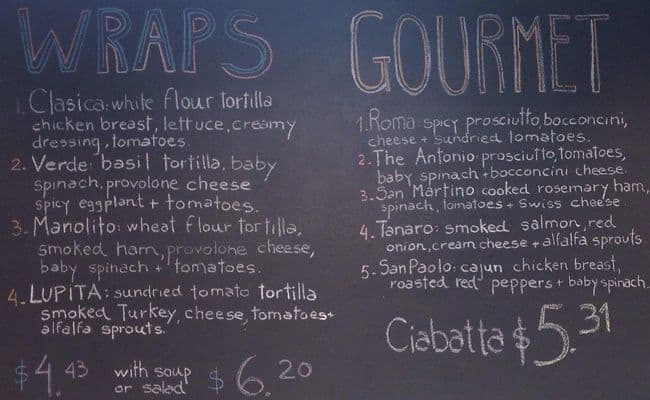 WRAPS
1. Clasica: white flour tortilla
chicken breast, lettuce, creamy
dressing, tomatoes.
2. Verde: basil tortilla, baby
spinach, provolone cheese
spicy eggplant + tomatoes.
3. Manolito: wheat flour tortilla,
smoked ham, provolone cheese,
baby spinach + tomatoes.
4. LUPITA: sundried tomato tortilla
smoked Turkey, cheese, tomatoes+
alfalfa sprouts.
$4.43 with soup or salad $6.20
GOURMET
1. Roma: spicy prosciutto, bocconcini,
cheese + sundried tomatoes.
2. The Antonio: prosciutto, tomatoes,
baby spinach + bocconcini cheese.
3. San Martino: cooked rosemary ham,
spinach, tomatoes + Swiss cheese
4. Tanaro: smoked salmon, red
onion, cream cheese + alfalfa sprouts
5. San Paolo: cajun chicken breast,
roasted red peppers + baby spinach
Ciabatta $5.31